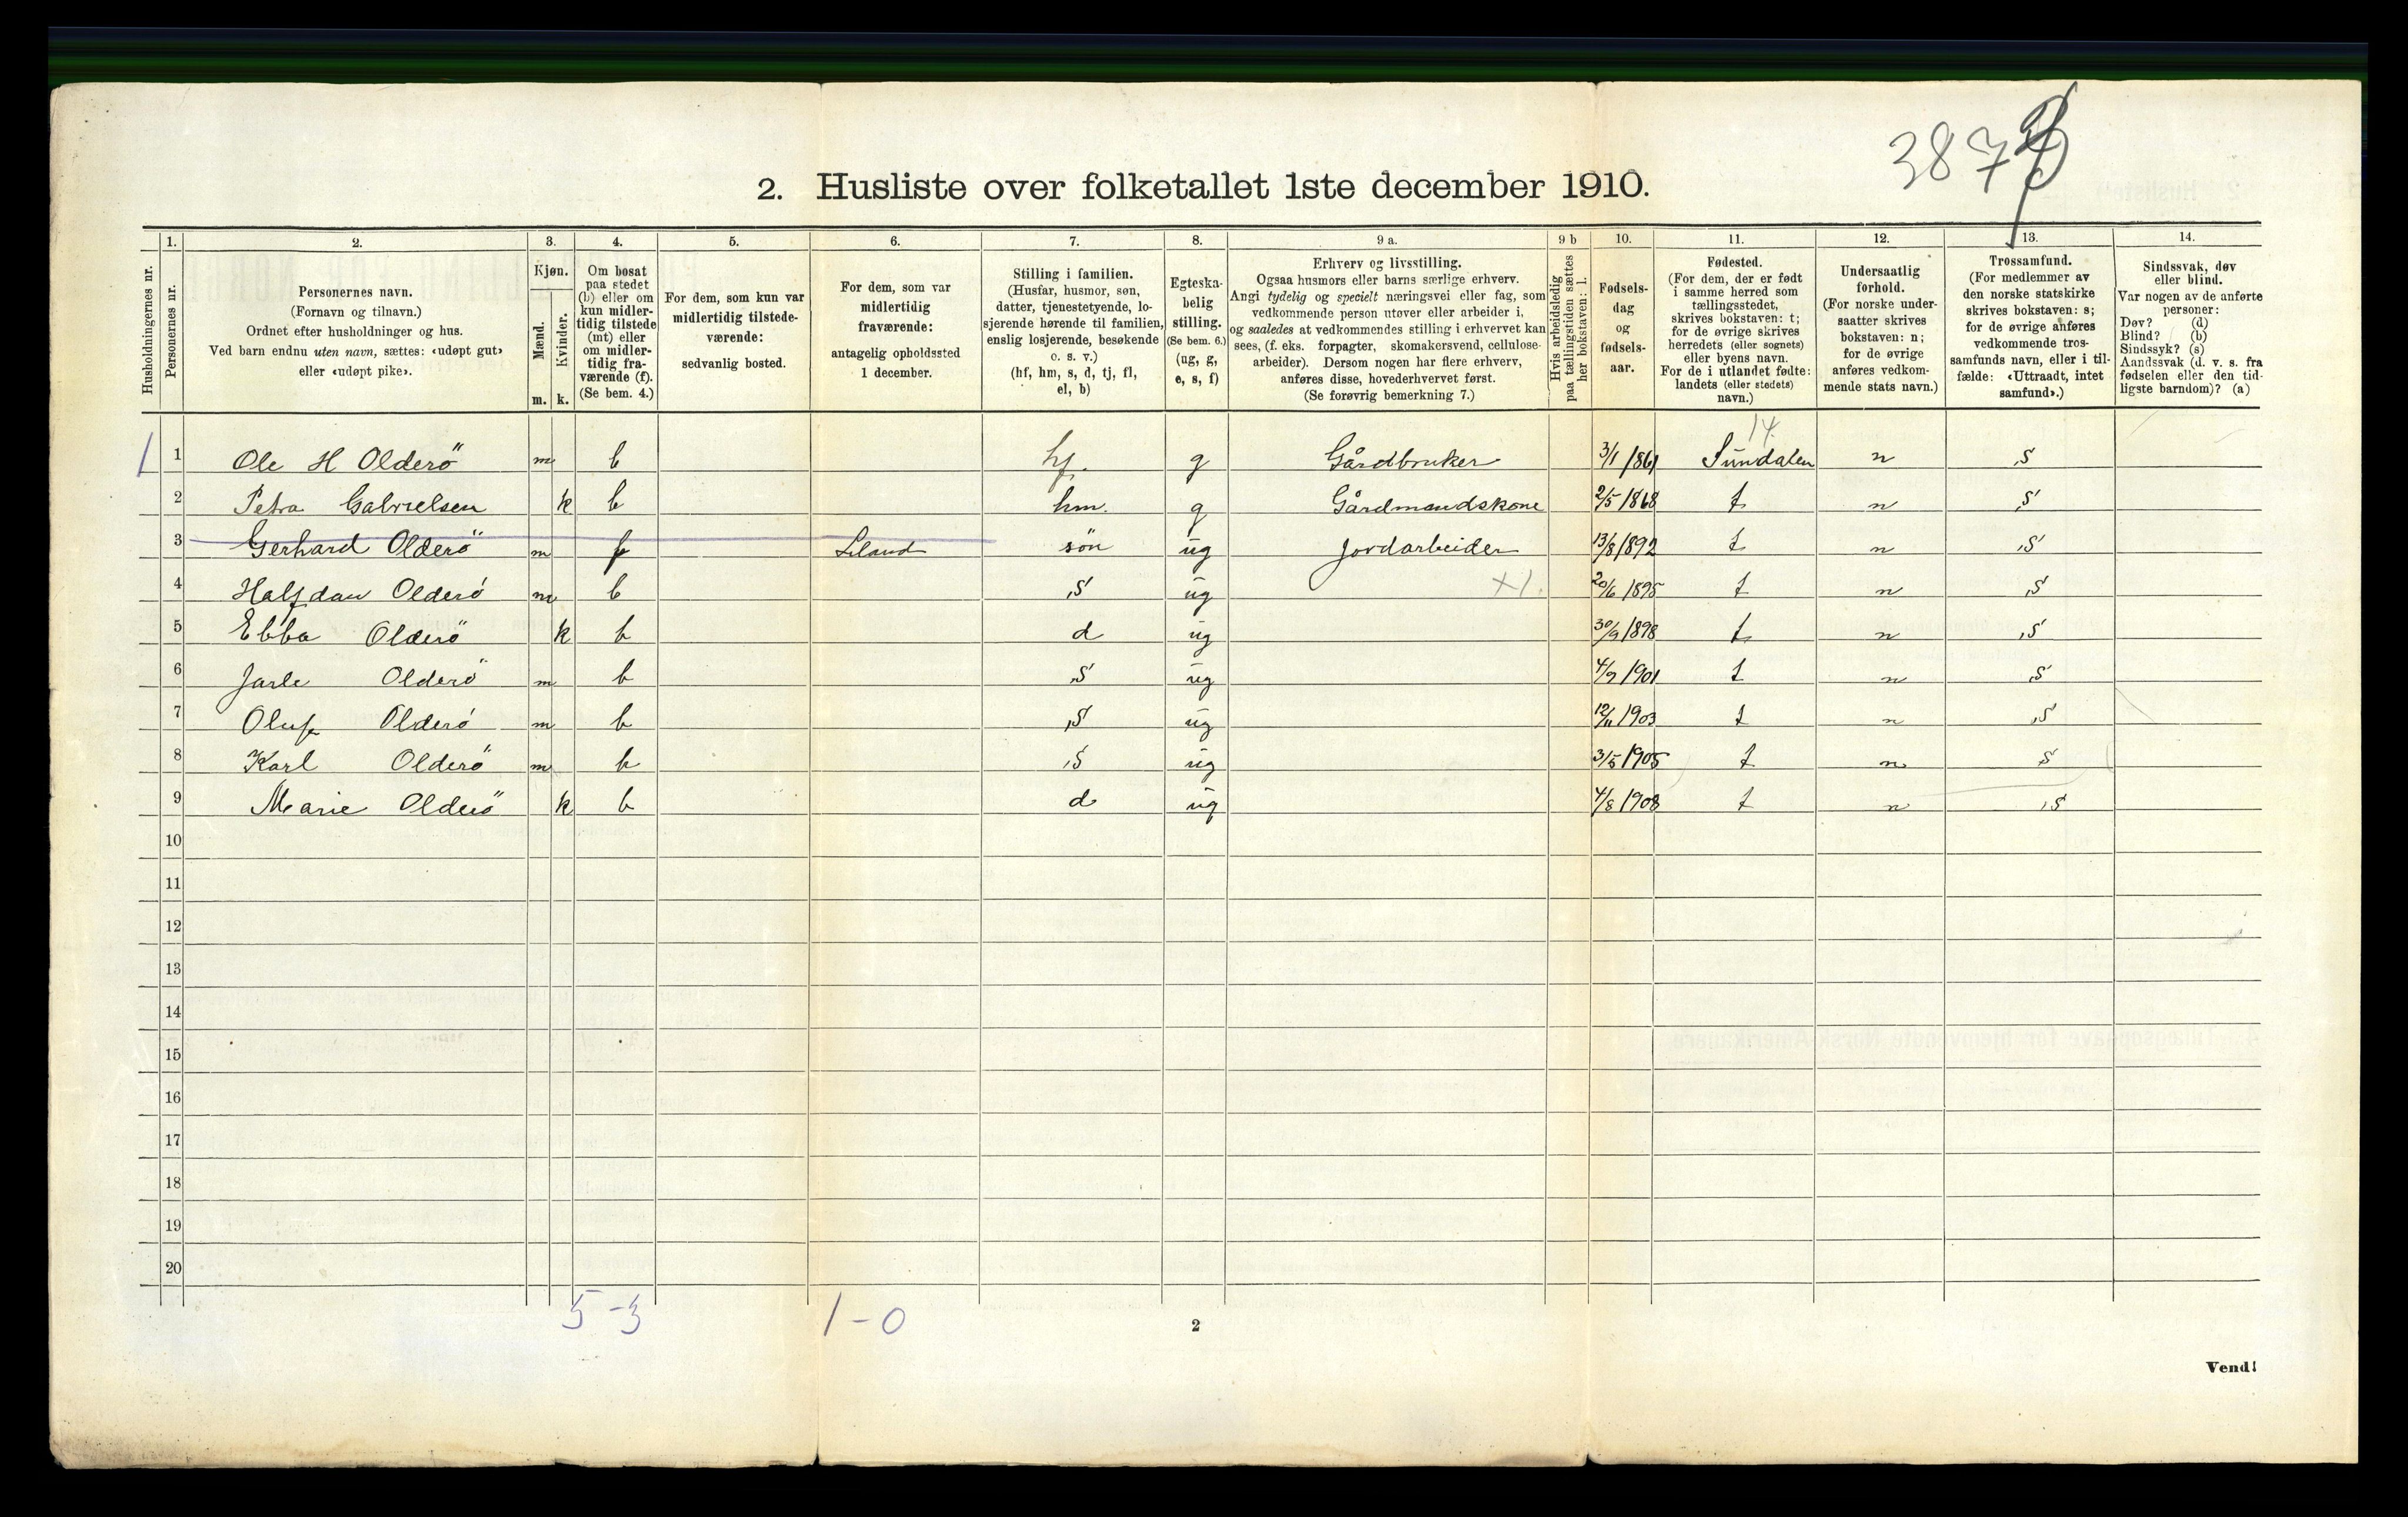 387
2. Husliste over folketallet 1ste december 1910.
Husholdningernes nr.
1. Personernes nr.
2. Personernes navn. (Fornavn og tilnavn.) Ordnet efter husholdninger og hus. Ved barn endnu uten navn, sættes: «udøpt gut» eller «udøpt pike».
3. Kjøn. Mænd. m. Kvinder. k.
4. Om bosat paa stedet (b) eller om kun midlertidig tilstede (mt) eller om midlertidig fraværende (f). (Se bem. 4.)
5. For dem, som kun var midlertidig tilstedeværende: sedvanlig bosted.
6. For dem, som var midlertidig fraværende: antagelig opholdssted 1 december.
7. Stilling i familien. (Husfar, husmor, søn, datter, tjenestetyende, losjerende hørende til familien, enslig losjerende, besøkende o. s. v.) (hf, hm, s, d, tj, fl, el, b)
8. Egteskabelig stilling. (Se bem. 6.) (ug, g, e, s, f)
9 a. Erhverv og livsstilling. Ogsaa husmors eller barns særlige erhverv. Angi tydelig og specielt næringsvei eller fag, som vedkommende person utøver eller arbeider i, og saaledes at vedkommendes stilling i erhvervet kan sees, (f. eks. forpagter, skomakersvend, cellulosearbeider). Dersom nogen har flere erhverv, anføres disse, hovederhvervet først. (Se forøvrig bemerkning 7.)
9 b Hvis arbeidsledig paa tællingstiden sættes her bokstaven: l.
10. Fødselsdag og fødselsaar.
11. Fødested. (For dem, der er født i samme herred som tællingsstedet, skrives bokstaven: t; for de øvrige skrives herredets (eller sognets) eller byens navn. For de i utlandet fødte: landets (eller stedets) navn.)
12. Undersaatlig forhold. (For norske undersaatter skrives bokstaven: n; for de øvrige anføres vedkommende stats navn.)
13. Trossamfund. (For medlemmer av den norske statskirke skrives bokstaven: s; for de øvrige anføres vedkommende trossamfunds navn, eller i tilfælde: «Uttraadt, intet samfund».)
14. Sindssvak, døv eller blind. Var nogen av de anførte personer: Døv? (d) Blind? (b) Sindssyk? (s) Aandssvak (d. v. s. fra fødselen eller den tidligste barndom)? (a)
14.
1 1 Ole H Olderö m b hf. g Gårdbruker 3/1 1861 Sundalen n S
2 Petra Gabrielsen k b hm. g Gårdmandskone 2/5 1868 t n S
3 Gerhard Olderö m f Leland sön ug Jordarbeider 13/8 1892 t n S
4 Halfdan Olderö m b S ug x1. 20/6 1895 t n S
5 Ebba Olderö k b d ug 30/9 1898 t n S
6 Jarle Olderö m b S ug 4/9 1901 t n S
7 Oluf Olderö m b S ug 12/11 1903 t n S
8 Karl Olderö m b S ug 3/5 1905 t n S
9 Marie Olderö k b d ug 4/8 1908 t n S
10
11
12
13
14
15
16
17
18
19
20
5-3 1-0
2
Vend!